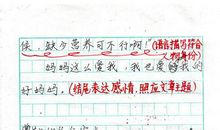 候，缺少营养可不行啊！(语言描写符合人物身份)
妈妈这么爱我，我也爱妈妈
好的妈妈。(结尾表达感情，照应文章主题)